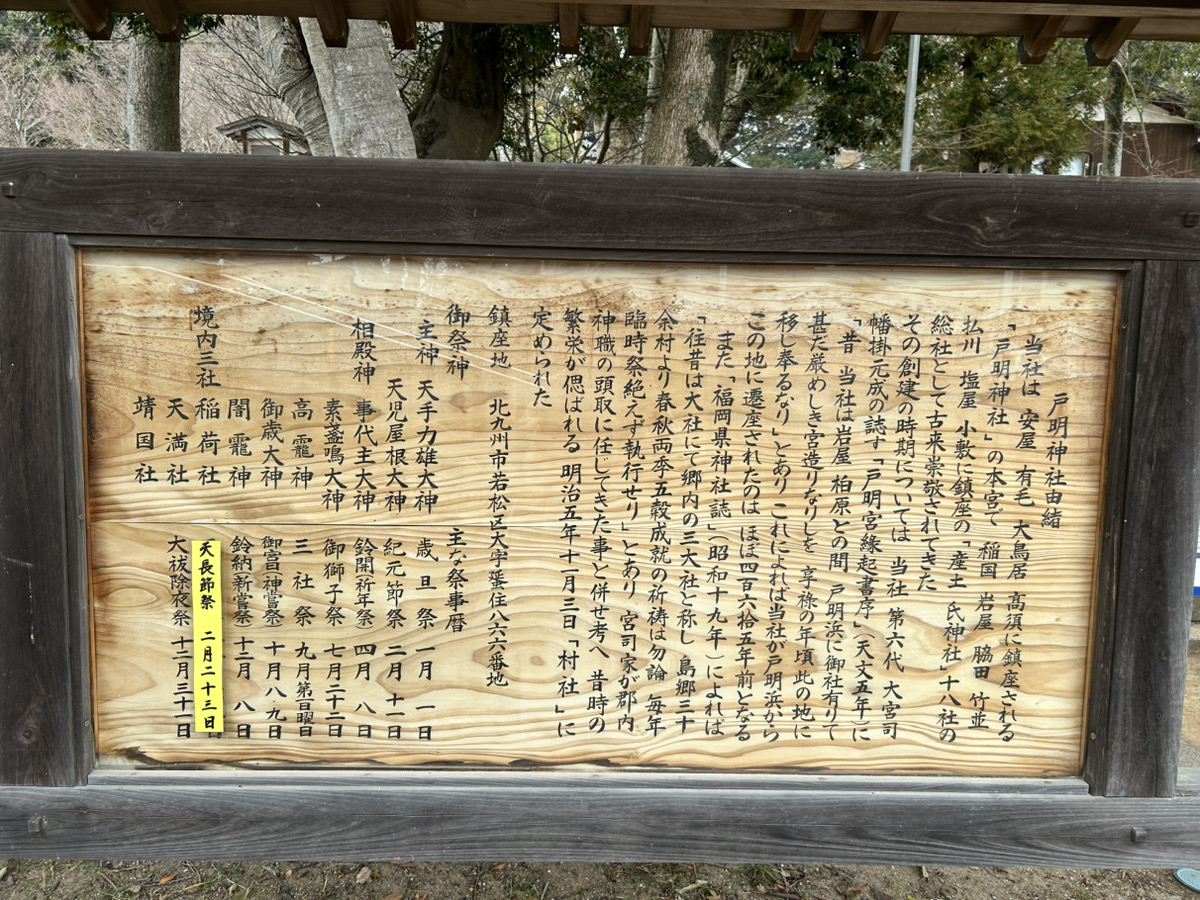 戸明神社由緒
「当社は 安屋 有毛 大鳥居 高須に鎮座される
「戸明神社」の本宮で 稲国 岩屋 脇田 竹並
払川 塩屋 小敷に鎮座の「産土 氏神社」十八社の
総社として古来崇敬されてきた
その創建の時期については 当社 第六代 大宮司
幡掛元成の誌す「戸明宮縁起書序」(天文五年)に
「昔 当社は岩屋 柏原との間 戸明浜に御社有りて
甚だ厳めしき宮造りなりしを 享禄の年頃此の地に
移し奉るなり」とあり これによれば当社が戸明浜から
この地に遷座されたのは ほぼ四百六拾五年前となる
また「福岡県神社誌」(昭和十九年)によれば
「往昔は大社にて郷内の三大社と称し 島郷三十
余村より春秋両季五穀成就の祈祷は勿論 毎年
臨時祭絶えず執行せり」とあり 宮司家が郡内
神職の頭取に任してきた事と併せ考へ 昔時の
繁栄が偲ばれる 明治五年十一月三日「村社」に
定められた
鎮座地 北九州市若松区大字蜑住八六六番地
御祭神
主神 天手力雄大神
天児屋根大神
相殿神 事代主大神
素盞鳴大神
高龗神
闇龗神
御歳大神
境内三社 稲荷社
天満社
靖国社
主な祭事暦
歳旦祭 一月 一日
紀元節祭 二月 十一日
鈴開祈年祭 四月 八日
御獅子祭 七月二十二日
三社祭 九月第二日曜日
御宮神嘗祭 十月八・九日
鈴納新嘗祭 十二月 八日
天長節祭 二月二十三日
大祓除夜祭 十二月三十一日